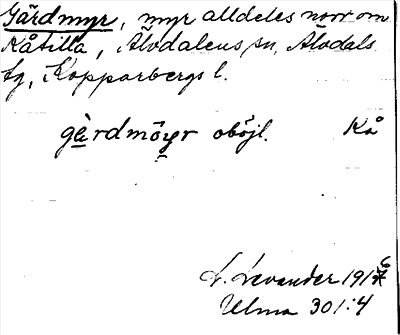 Gärdmyr, myr alldeles norr om
Kåtilla, Älvdalens sn, Älvdals
tg, Kopparbergs l.
gàrdmö̀yr oböjl. Kå
L. Levander 1916
Ulma 301:4